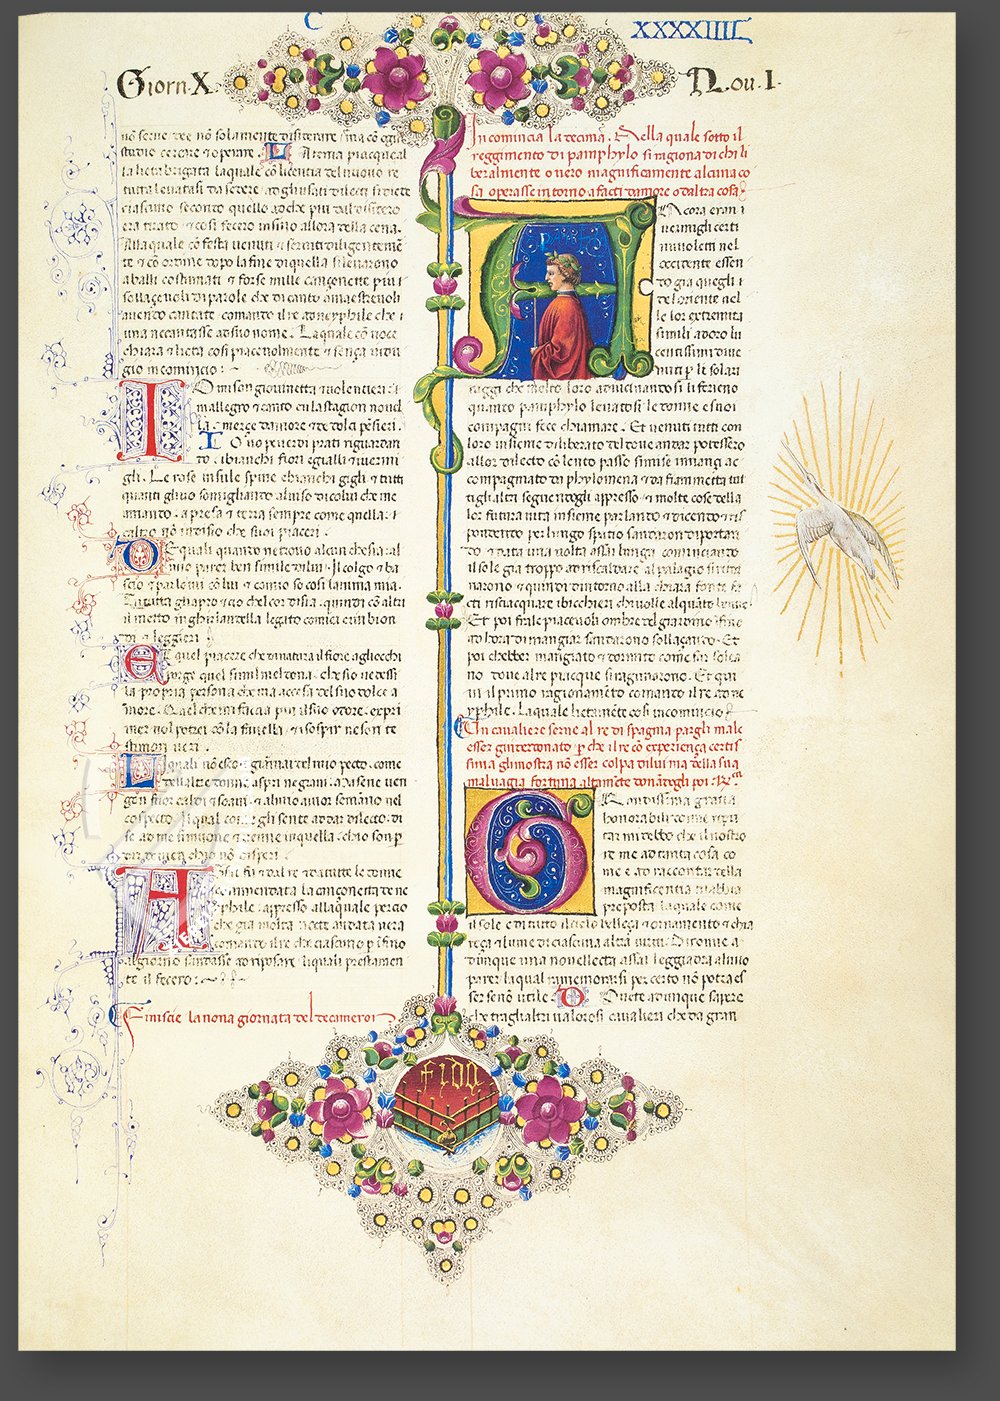 C
XXXXIIII
Giorn·X·
N·ou·I·
nō serue dee nō solamente disiderare ma cō ogni
studio cercare ⁊ operare. L A tema piacque al
la lieta brigata laquale cō licentia del nuouo re
tutta leuatasi da sedere
ciascuno secondo quello ad che piu dal disidero
era tirato ⁊ cosi fecero insino allora della cena.
Alla quale cō festa uenuti ⁊ seruiti diligentemē
te ⁊ cō ordine dopo la fine di quella si leuarono
a balli costumati ⁊ forse mille canzonette piu
sollazzeuoli di parole che di canto
auendo cantate comando il re ad neyphile che
una ne cantasse ad suo nome. La quale cō uoce
chiara ⁊ lieta cosi piaceuolmente ⁊ senza indu
gio incomincio:
IO mi son giouinetta ⁊ uolentieri
mallegro ⁊ canto en la stagion nouel
la merce damore ⁊ de dolci pésieri.
IO uo pe uerdi prati riguardan
do ibianchi fiori egialli ⁊ uermi
gli. Le rose in su le spine ebianchi gigli ⁊ tutti
quanti gli uo somigliando al uiso di colui che me
amando a presa ⁊ terra sempre come quella
caltro nō in disio che suoi piaceri.
DE quali quando ne trouo alcun che sia al
mio parer ben simile di lui Il colgo ⁊ ba
scio ⁊ parlomi cō lui ⁊ comio so cosi lanima mia
Tututta gliapro ⁊ cio chel cor disia quindi cō altri
il metto in ghirlandella legato co miei crin bion
di ⁊ leggieri
E quel piacere che di natura il fiore agliocchi
porge quel simil mel dona che sio uedessi
la propria persona che ma accesa del suo dolce a
more. Quel che mi faccia piu il suo odore. expri
mer nol potrei cō la fauella ⁊ isospir ne son te
stimon ueri.
Li quali nō escon giamai del mio pecto. come
dellaltre donne aspri ne graui. Ma sene uen
gon fuor caldi ⁊ soaui ⁊ al mio amor sen uāno nel
cospecto. il qual come gli sente ad dar dilecto di
se ad me si muoue ⁊ uienne in quella chio son p
dir deh uien chio nō disperi.
ASsai fu ⁊ dal re ⁊ da tutte le donne
commendata la canzonetta di ne
yphile appresso alla quale percio
che gia molta notte andata nera
comando il re che ciascuno p infino
al giorno sandasse ad riposare liquali prestamen
te il fecero:
Finiscie la nona giornata del decameron
Incomincia la decima. Nella quale sotto il
reggimento di pamphylo si ragiona di chi li
beralmente o uero magnificamente alcuna co
sa operasse intorno a facti damore o daltra cosa
ANcora erano
uermigli certi
nuuoletti nel
occidente essen
do gia quegli
del oriente nel
le lor extremita
simili ad oro lu
centissimi diue
nuti p li solari
raggi che molto loro auicinandosi li ferieno
quando pamphylo leuatosi le donne e suoi
compagni fece chiamare. Et uenuti tutti con
loro insieme diliberato del doue andar potessero
al lor dilecto cō lento passo si mise innanzi ac
compagnato da phylomena ⁊ da fiammetta tut
ti gli altri seguendogli appresso ⁊ molte cose della
lor futura uita insieme parlando ⁊ dicendo ⁊ ris
pondendo per lungo spatio sandaron diportan
do ⁊ data una uolta assai lunga cominciando
il sole gia troppo ad riscaldare al palagio si rito
narono ⁊ quiui dintorno alla chiara fonte fa
cti risciacquare ibicchieri chi uolle alquāto
Et poi fra le piaceuoli ombre del giardino infino
ad hora di mangiar sandarono sollazzando. Et
poi chebber mangiato ⁊ dormito come far solea
no doue al re piacque si ragunorono. Et qui
ui il primo ragionamēto comando il re ad ne
yphile. La quale lietamēte cosi incomincio
Un caualiere serue al re di spagna pargli male
esser guiderdonato p che il re cō experienza certis
sima gli mostra nō esser colpa di lui ma della sua
maluagia fortuna altamēte donadogli poi
GRandissima gratia
honorabili donne ripu
tar mi debbo che il nostro
re me ad tanta cosa co
me e ad raccontar della
magnificentia mabbia
preposta la quale come
il sole e di tutto il cielo bellezza ⁊ ornamento ⁊ chia
rezza ⁊ lume di ciascuna altra uirtu. Dironne a
dunque una nouelletta assai leggiadra al mio
parer la qual ramemorarsi per certo nō potra es
ser se nō utile. DOuete adunque sapere
che tra gli altri ualorosi caualieri che da gran